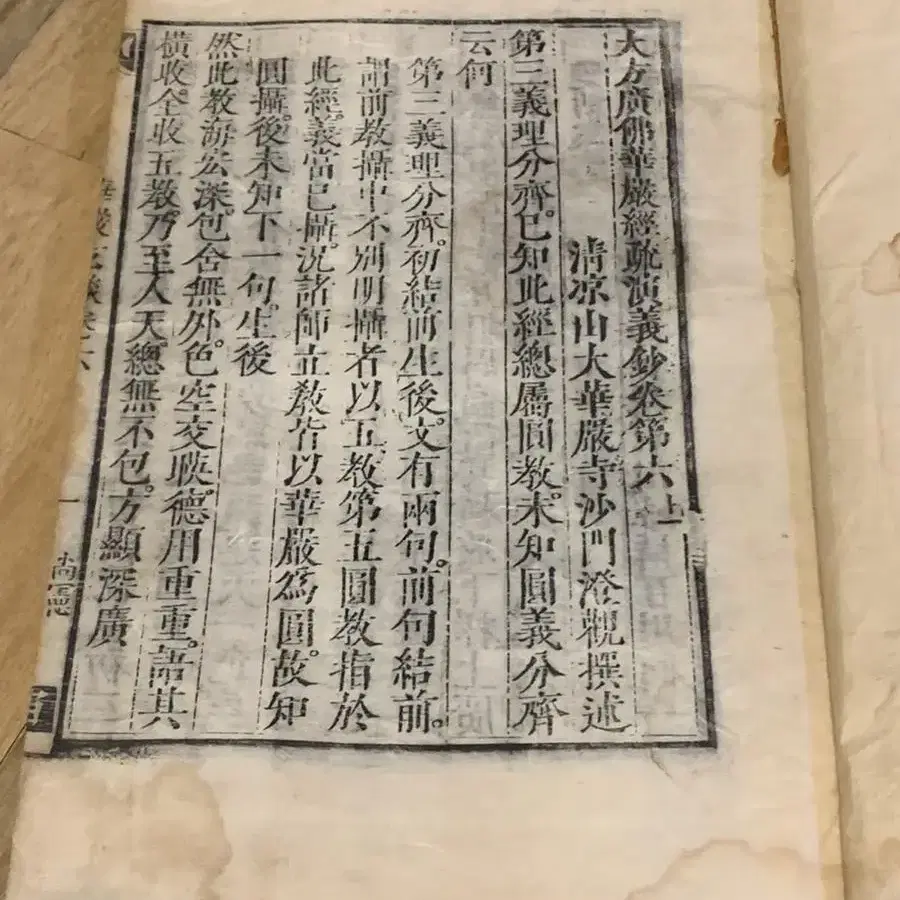 大方廣佛華嚴經疏演義鈔卷第六上
清凉山大華嚴寺沙門澄觀撰述
第三義理分齊已知此經總屬圓教未知圓義分齊
云何
第三義理分齊。初結前生後。文有兩句。前句結前。
謂前教攝中不別明攝者以五教第五圓教指於
此經。義當已攝。况諸師立教皆以華嚴爲圓。故知
圓攝。後未知下一句。生後
然此教海宏深。包含無外。色空交暎。德用重重。語其
橫收。全收五教。乃至人天總無不包。方顯深廣